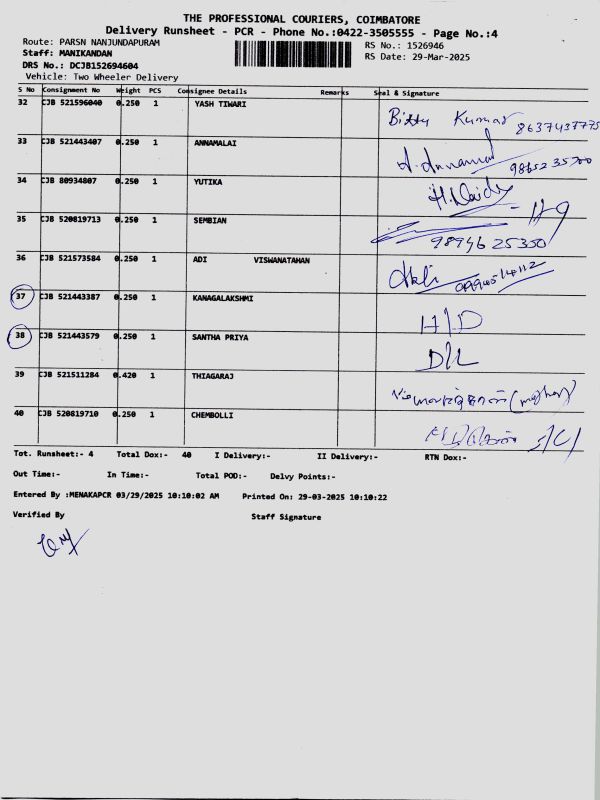 THE PROFESSIONAL COURIERS, COIMBATORE
Delivery Runsheet - PCR - Phone No.:0422-3505555 - Page No.:4
Route: PARSN NANJUNDAPURAM
RS No.: 1526946
Staff: MANIKANDAN
RS Date: 29-Mar-2025
DRS No.: DCJB152694604
Vehicle: Two Wheeler Delivery
S No Consignment No Weight PCS Consignee Details Remarks Seal & Signature
32 CJB 521596040 0.250 1 YASH TIWARI Bittu Kumar 8637437775
33 CJB 521443407 0.250 1 ANNAMALAI 9865235200
34 CJB 80934807 0.250 1 YUTIKA
35 CJB 520819713 0.250 1 SEMBIAN 9894625350
36 CJB 521573584 0.250 1 ADI VISWANATAHAN
37 CJB 521443387 0.250 1 KANAGALAKSHMI H/D
38 CJB 521443579 0.250 1 SANTHA PRIYA D/L
39 CJB 521511284 0.420 1 THIAGARAJ
40 CJB 520819710 0.250 1 CHEMBOLLI
Tot. Runsheet:- 4 Total Dox:- 40 I Delivery:- II Delivery:- RTN Dox:-
Out Time:- In Time:- Total POD:- Delvy Points:-
Entered By :MENAKAPCR 03/29/2025 10:10:02 AM Printed On: 29-03-2025 10:10:22
Verified By Staff Signature